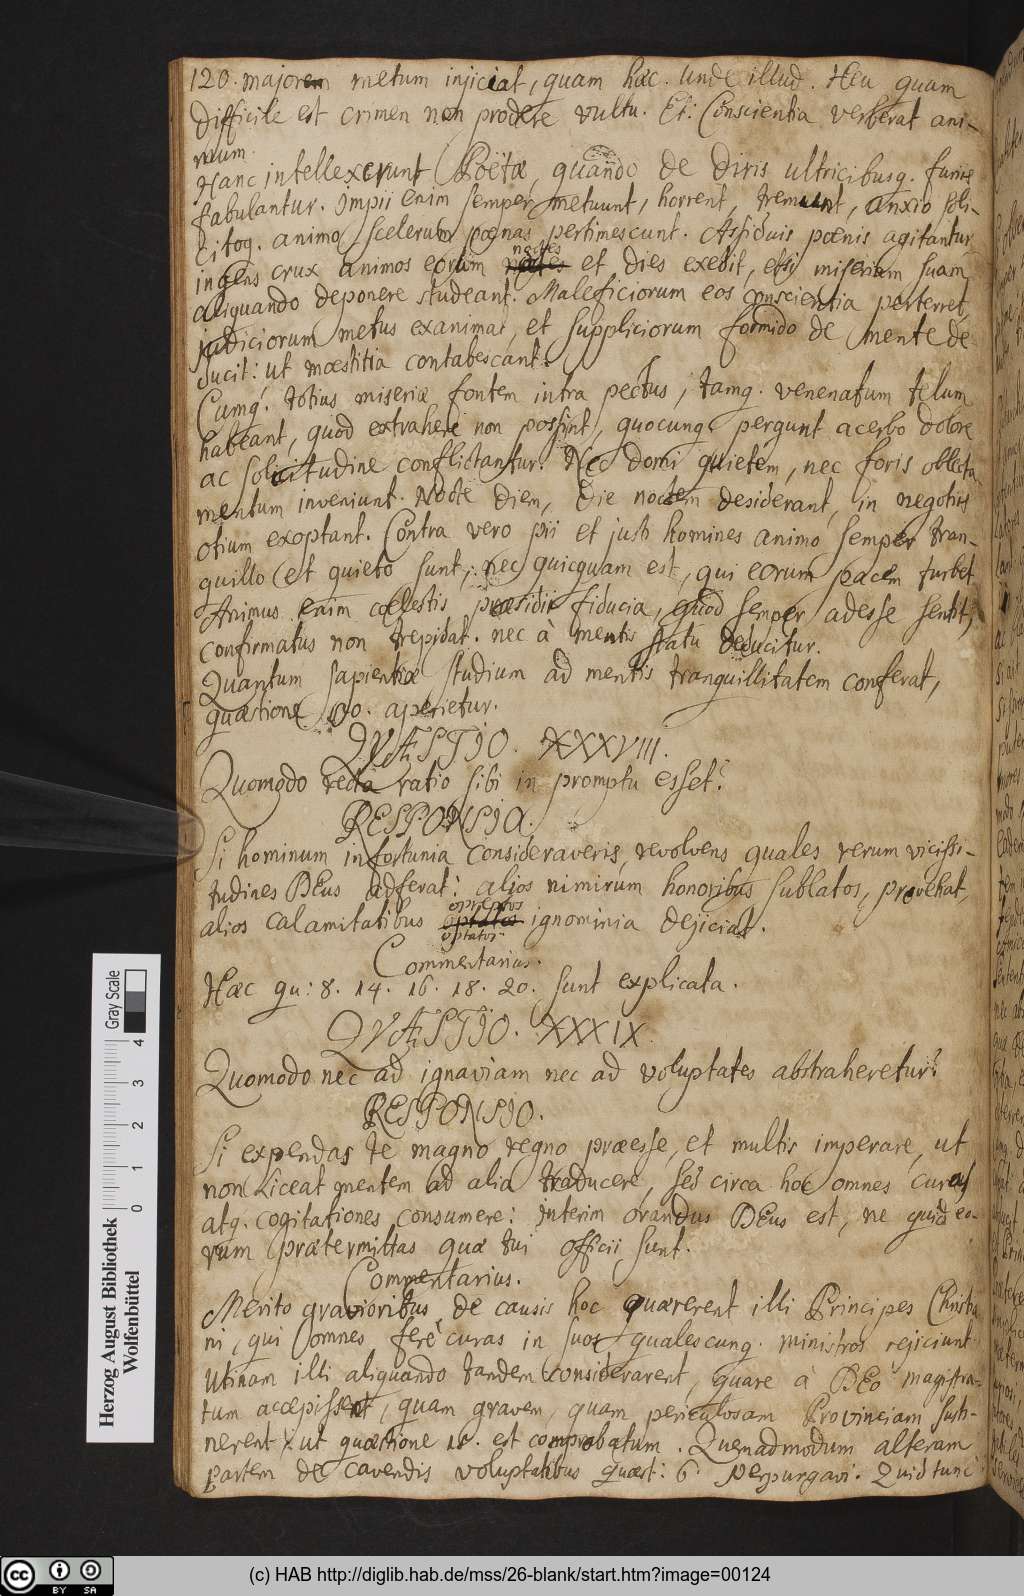 120. majorem metum injiciat, quam hæc. Unde illud. Heu quam
difficile est crimen non prodere vultu. Et: Conscientia verberat ani-
mum.
Hanc intellexerunt Poëtæ, quando de diris ultricibusq. furiis
fabulantur. Impii enim semper metuunt, horrent, tremunt, anxio soli-
citoq. animo scelerum pœnas pertimescunt. Assiduis pœnis agitantur
noctes
ingens crux animos eorum et dies exedit, etsi miseriam suam
aliquando deponere studeant. Maleficiorum eos conscientia perterret,
judiciorum metus exanimat, et suppliciorum formido de mente de-
ducit: ut mœstitia contabescant.
Cumq. totius miseriæ fontem intra pectus, tamq. venenatum telum
habeant, quod extrahere non possint, quocunq. pergunt acerbo dolore
ac solicitudine conflictantur. Nec domi quietem, nec foris oblecta
mentum inveniunt. Nocte diem, die noctem desiderant, in negotiis
otium exoptant. Contra vero pii et justi homines animo semper tran-
quillo et quieto sunt, nec quicquam est, qui eorum pacem turbet
Animus enim cœlestis præsidii fiducia, quod semper adesse sentit,
confirmatus non trepidat. nec à mentis statu deducitur.
Quantum sapientiæ studium ad mentis tranquillitatem conferat,
quæstione 90. aperietur.
QVÆSTIO. XXXVIII.
Quomodo recta ratio sibi in promptu esset?
RESPONSIO.
Si hominum infortunia consideraveris, revolvens quales rerum vicissi-
tudines DEus adferat: alios nimirum honoribus sublatos, provehat,
oppletos
alios calamitatibus optatos ignominia dejiciat.
optatos
Commentarius.
Hæc qu: 8. 14. 16. 18. 20. sunt explicata.
QVÆSTIO. XXXIX.
Quomodo nec ad ignaviam nec ad voluptates abstraheretur?
RESPONSIO.
Si expendas te magno regno præesse, et multis imperare, ut
non liceat mentem ad alia traducere, sed circa hoc omnes curas
atq. cogitationes consumere: Interim orandus DEus est, ne quid eo-
rum prætermittas quæ tui officii sunt.
Commentarius.
Merito gravioribus de causis hoc quærerent illi Principes Christia
ni, qui omnes ferè curas in suos qualescunq. ministros rejiciunt.
Utinam illi aliquando tandem considerarent, quare a DEo magistra-
tum accepissent, quam gravem, quam periculosam Provinciam susti-
nerent, ut quæstione 18. est comprobatum. Quemadmodum alteram
partem de cavendis voluptatibus quæst: 6. perpurgavi. Quid tunc
Herzog August Bibliothek
Wolfenbüttel
0 1 2 3 4
Gray Scale
cc BY SA
(c) HAB http://diglib.hab.de/mss/26-blank/start.htm?image=00124